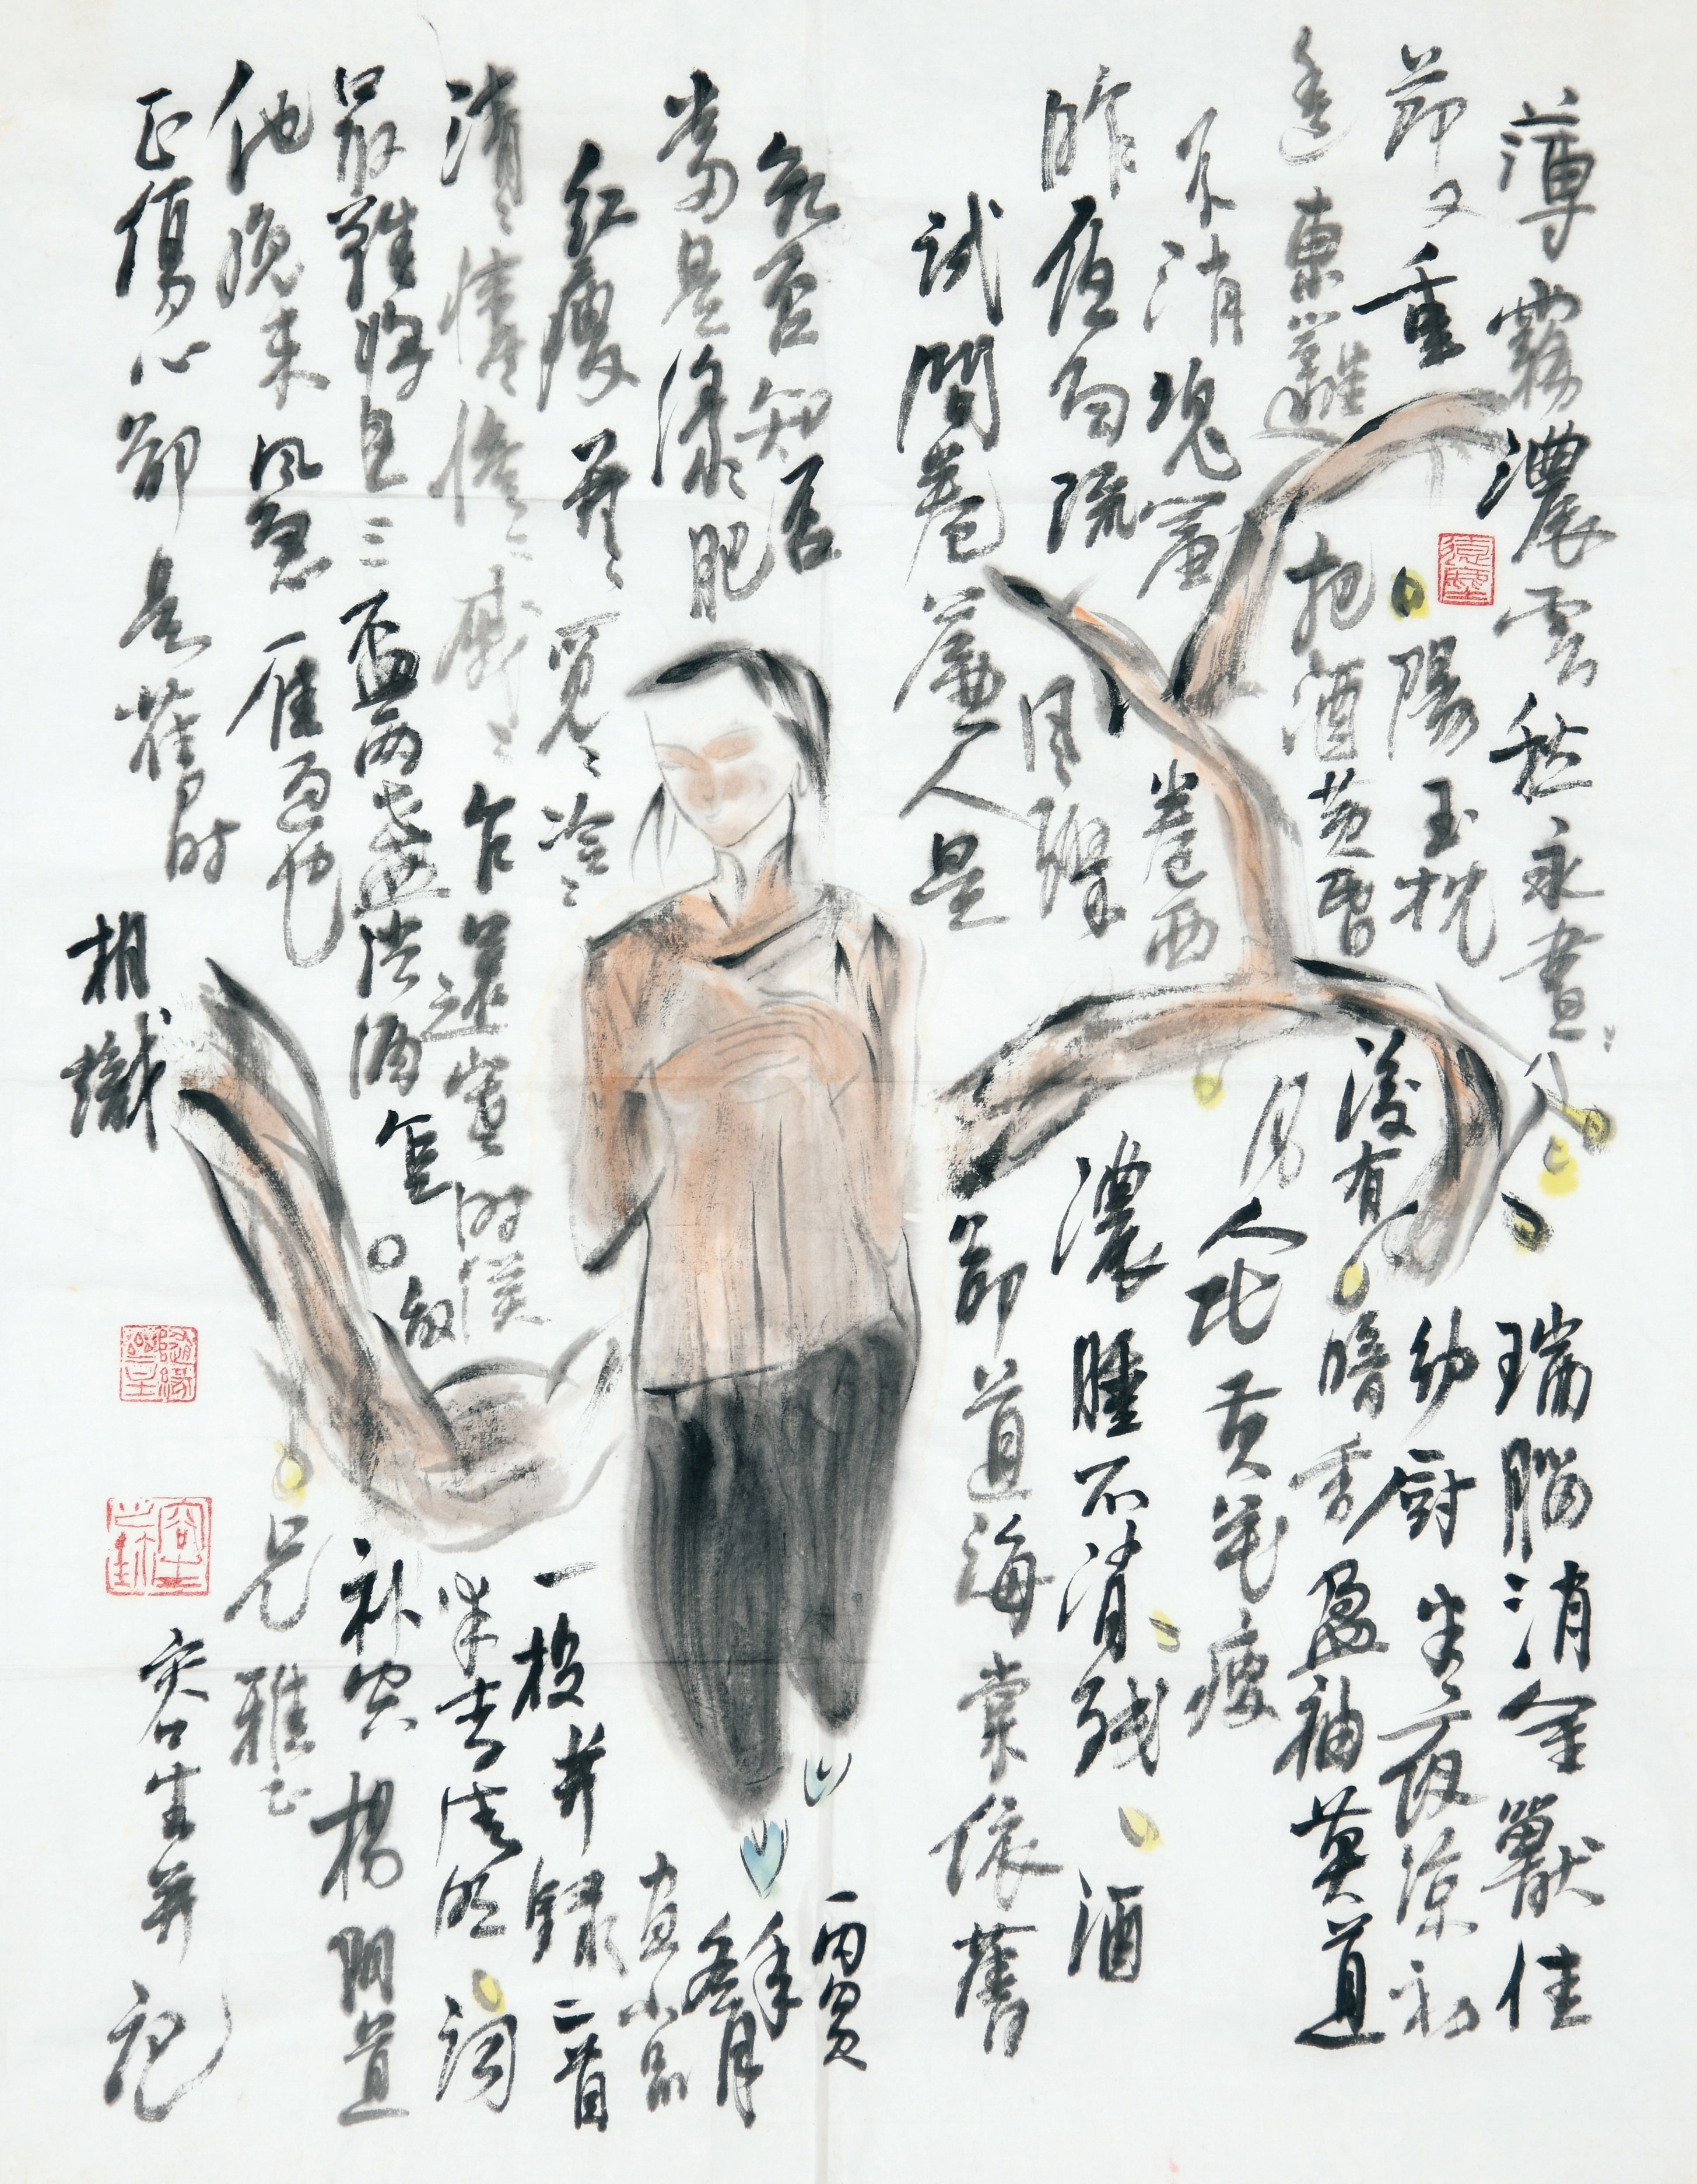 薄霧濃雲愁永晝瑞腦消金獸佳
節又重陽玉枕紗廚半夜涼初
透東籬把酒黃昏後有暗香盈袖莫道
不消魂簾卷西風人比黃花瘦
昨夜雨疏風驟濃睡不消殘酒
試問卷簾人是卻道海棠依舊
知否知否
當是綠肥
紅瘦尋尋覓覓冷冷
清清悽悽慘慘慼慼乍還寒時候
最難將息三盃兩盞淡酒怎敵
他晚來風急雁過也
正傷心卻是舊時
相識
丙寅
年冬月
畫小品
一并錄二首
李清照詞
補空楊開道
兄雅正
生并記